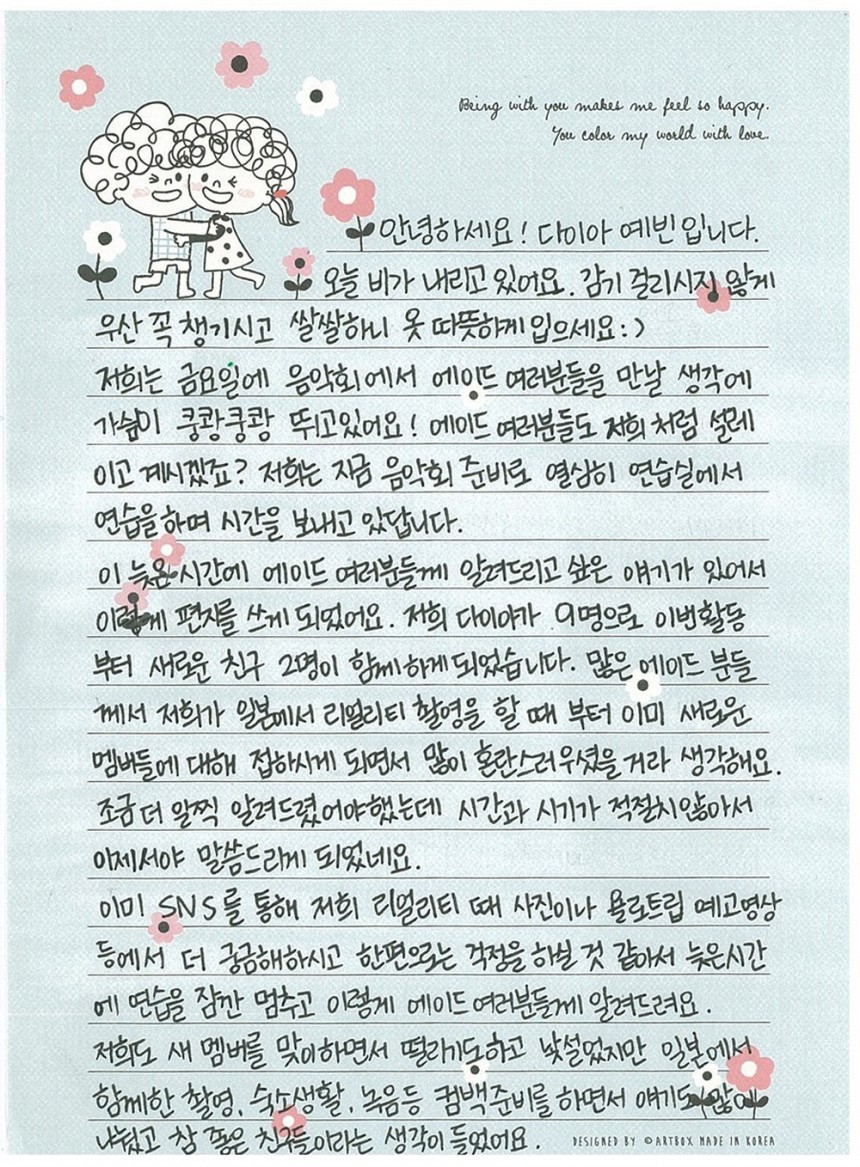 Being with you makes me feel so happy.
You color my world with love.
안녕하세요! 다이아 예빈입니다.
오늘 비가 내리고 있어요. 감기 걸리시지 않게
우산 꼭 챙기시고 쌀쌀하니 옷 따뜻하게 입으세요:)
저희는 금요일에 음악회에서 에이드 여러분들을 만날 생각에
가슴이 쿵쾅쿵쾅 뛰고있어요! 에이드 여러분들도 저희 처럼 설레
이고 계시겠죠? 저희는 지금 음악회 준비로 열심히 연습실에서
연습을하며 시간을 보내고 있답니다.
이 늦은 시간에 에이드 여러분들께 알려드리고 싶은 얘기가 있어서
이렇게 편지를 쓰게 되었어요. 저희 다이아가 9명으로 이번활동
부터 새로운 친구 2명이 함께하게되었습니다. 많은 에이드 분들
께서 저희가 일본에서 리얼리티 촬영을 할 때 부터 이미 새로운
멤버들에 대해 접하시게 되면서 많이 혼란스러우셨을거라 생각해요.
조금 더 일찍 알려드렸어야했는데 시간과 시기가 적절치않아서
이제서야 말씀드리게 되었네요.
이미 SNS를 통해 저희 리얼리티 때 사진이나 욜로트립 예고영상
등에서 더 궁금해하시고 한편으로는 걱정을 하실 것 같아서 늦은시간
에 연습을 잠깐 멈추고 이렇게 에이드 여러분들께 알려드려요.
저희도 새 멤버를 맞이하면서 떨리기도하고 낯설었지만 일본에서
함께한 촬영, 숙소생활, 녹음등 컴백준비를 하면서 얘기도 많이
나눴고 참 좋은 친구들이라는 생각이 들었어요.
DESIGNED BY © ARTBOX MADE IN KOREA